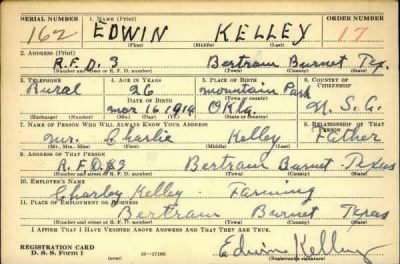 SERIAL NUMBER 1. Name (Print) ORDER NUMBER
162 EDWIN KELLEY 17
(First) (Middle) (Last)
2. Address (Print)
R.F.D. 3 Bertram Burnet Tex.
(Number and street or R. F. D. number) (Town) (County) (State)
3. Telephone 4. Age in Years 5. Place of Birth 6. Country of Citizenship
Rural 26 Mountain Park
Date of Birth (Town or county)
Mar. 16, 1914 Okla. U. S. A.
(Mo.) (Day) (Yr.) (State or country)
7. Name of Person Who Will Always Know Your Address 8. Relationship of That Person
Mr. Charlie Kelley Father
(Mr., Mrs., Miss) (First) (Middle) (Last)
9. Address of That Person
R.F.D. #3 Bertram Burnet Texas
(Number and street or R. F. D. number) (Town) (County) (State)
10. Employer's Name
Charley Kelley. Farming
11. Place of Employment or Business
Bertram Burnet Texas
(Number and street or R. F. D. number) (Town) (County) (State)
I Affirm That I Have Verified Above Answers and That They Are True.
REGISTRATION CARD
D. S. S. Form 1 16—17105 Edwin Kelley
(Registrant's signature)